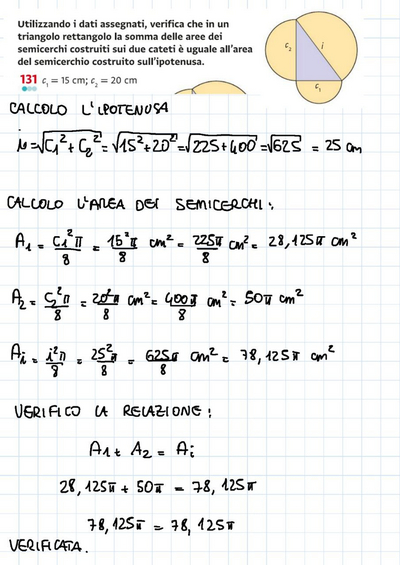 Utilizzando i dati assegnati, verifica che in un
triangolo rettangolo la somma delle aree dei
semicerchi costruiti sui due cateti è uguale all'area
del semicerchio costruito sull'ipotenusa.
131 c₁ = 15 cm; c₂ = 20 cm
c₂ i
c₁
CALCOLO L'IPOTENUSA
i = √C₁² + C₂² = √15² + 20² = √225 + 400 = √625 = 25 cm
CALCOLO L'AREA DEI SEMICERCHI:
A₁ = C₁²π/8 = 15²π/8 cm² = 225π/8 cm² = 28,125π cm²
A₂ = C₂²π/8 = 20²π/8 cm² = 400π/8 cm² = 50π cm²
Ai = i²π/8 = 25²π/8 = 625π/8 cm² = 78,125π cm²
VERIFICO LA RELAZIONE:
A₁ + A₂ = Ai
28,125π + 50π = 78,125π
78,125π = 78,125π
VERIFICATA.